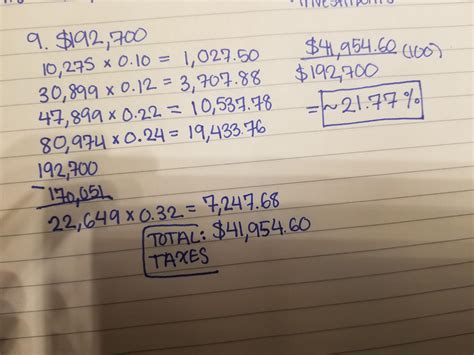 Investments
9. $192,700
10,275 x 0.10 = 1,027.50
30,899 x 0.12 = 3,707.88
47,899 x 0.22 = 10,537.78
80,974 x 0.24 = 19,433.76
192,700
- 170,051
22,649 x 0.32 = 7,247.68
TOTAL: $41,954.60
TAXES
$41,954.60 (100)
$192,700
= ~21.77%